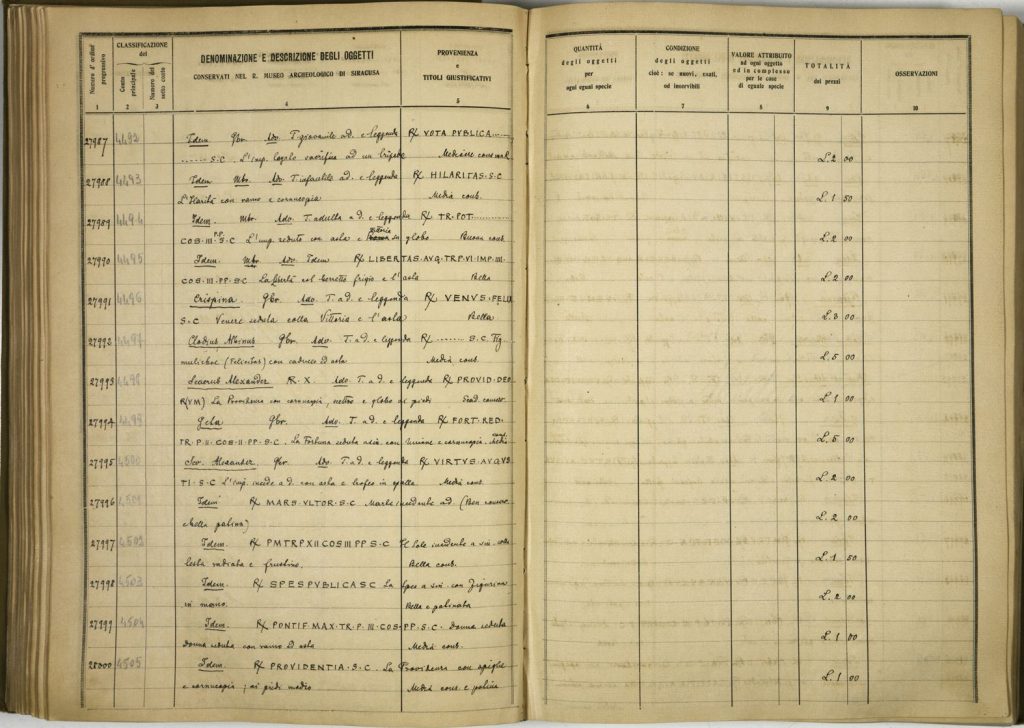 Numero d'ordine progressivo
CLASSIFICAZIONE
del
Conto principale
Numero del sotto conto
DENOMINAZIONE E DESCRIZIONE DEGLI OGGETTI
CONSERVATI NEL R. MUSEO ARCHEOLOGICO DI SIRACUSA
PROVENIENZA
e
TITOLI GIUSTIFICATIVI
QUANTITÀ
degli oggetti
per
ogni eguai specie
CONDIZIONE
degli oggetti
cioè: se nuovi, usati,
od inservibili
VALORE ATTRIBUITO
ad ogni oggetto
ed in complesso
per le cose
di eguale specie
TOTALITÀ
dei prezzi
OSSERVAZIONI
1 2 3 4 5 6 7 8 9 10
27987 4492 Idem Gbr. Adv. T. giovanile a d. e leggenda ℞ VOTA PVBLICA........
....... S.C. L'imp. togato sacrifica ad un tripode Mediocre cons. L. 2 00
27988 4493 Idem Mbr. Adv. T. infantile a d. e leggenda ℞ HILARITAS.S.C
L'Ilarità con ramo e cornucopia Media cons. L. 1 50
27989 4494 Idem. Mbr. Adv. T. adulta a d. e leggenda ℞ TR.POT..........
COS.III.P.P.S.C L'imp. seduto con asta e Vittoria su globo Buona cons. L. 2 00
27990 4495 Idem. Mbr. Adv. Idem ℞ LIBERTAS.AVG.TRP.VI.IMP.IIII.
COS.III.PP.SC La libertà col berretto frigio e l'asta Bella L. 2 00
27991 4496 Crispina. Gbr. Adv. T. a d. e leggenda ℞ VENVS.FELIX
S.C Venere seduta colla Vittoria e l'asta Bella L. 3 00
27992 4497 Clodius Albinus Gbr. Adv. T. a d. e leggenda ℞ ........ S.C. Fig.
muliebre (Felicitas) con caduceo ed asta Media cons. L. 5 00
27993 4498 Severus Alexander AR. X. Adv. T. a d. e leggenda ℞ PROVID.DEO
R(VM) La Providenza con cornucopia, scettro e globo ai piedi L. 1 00
27994 4499 Geta Gbr. Adv. T. a d. e leggenda ℞ FORT.RED.
TR.P.II.COS.II.PP.S.C. La Fortuna seduta a sin. con timone e cornucopia. Media cons. L. 5 00
27995 4500 Sev. Alexander. Gbr. Adv. T. a d. e leggenda ℞ VIRTVS.AVGVS
TI.S.C L'imp. incede a d. con asta e trofeo in spalla Media cons. L. 2 00
27996 4501 Idem ℞ MARS.VLTOR.S.C Marte incedente a d. (Ben conserv.
e bella patina) L. 2 00
27997 4502 Idem. ℞ PMTRPXIICOSIIIPPS.C Il Sole incedente a sin. colla
testa radiata e frustino. Bella cons. L. 1 50
27998 4503 Idem. ℞ SPESPVBLICASC La Spes a sin. con
in mano. Bella e patinata L. 2 00
27999 4504 Idem. ℞ PONTIF.MAX.TR.P.III.COS.PP.S.C. Donna seduta
donna seduta con ramo ed asta Media cons. L. 1 00
28000 4505 Idem ℞ PROVIDENTIA.S.C. La Providenza con spighe
e cornucopia; ai piedi modio Media cons. e patina L. 1 00